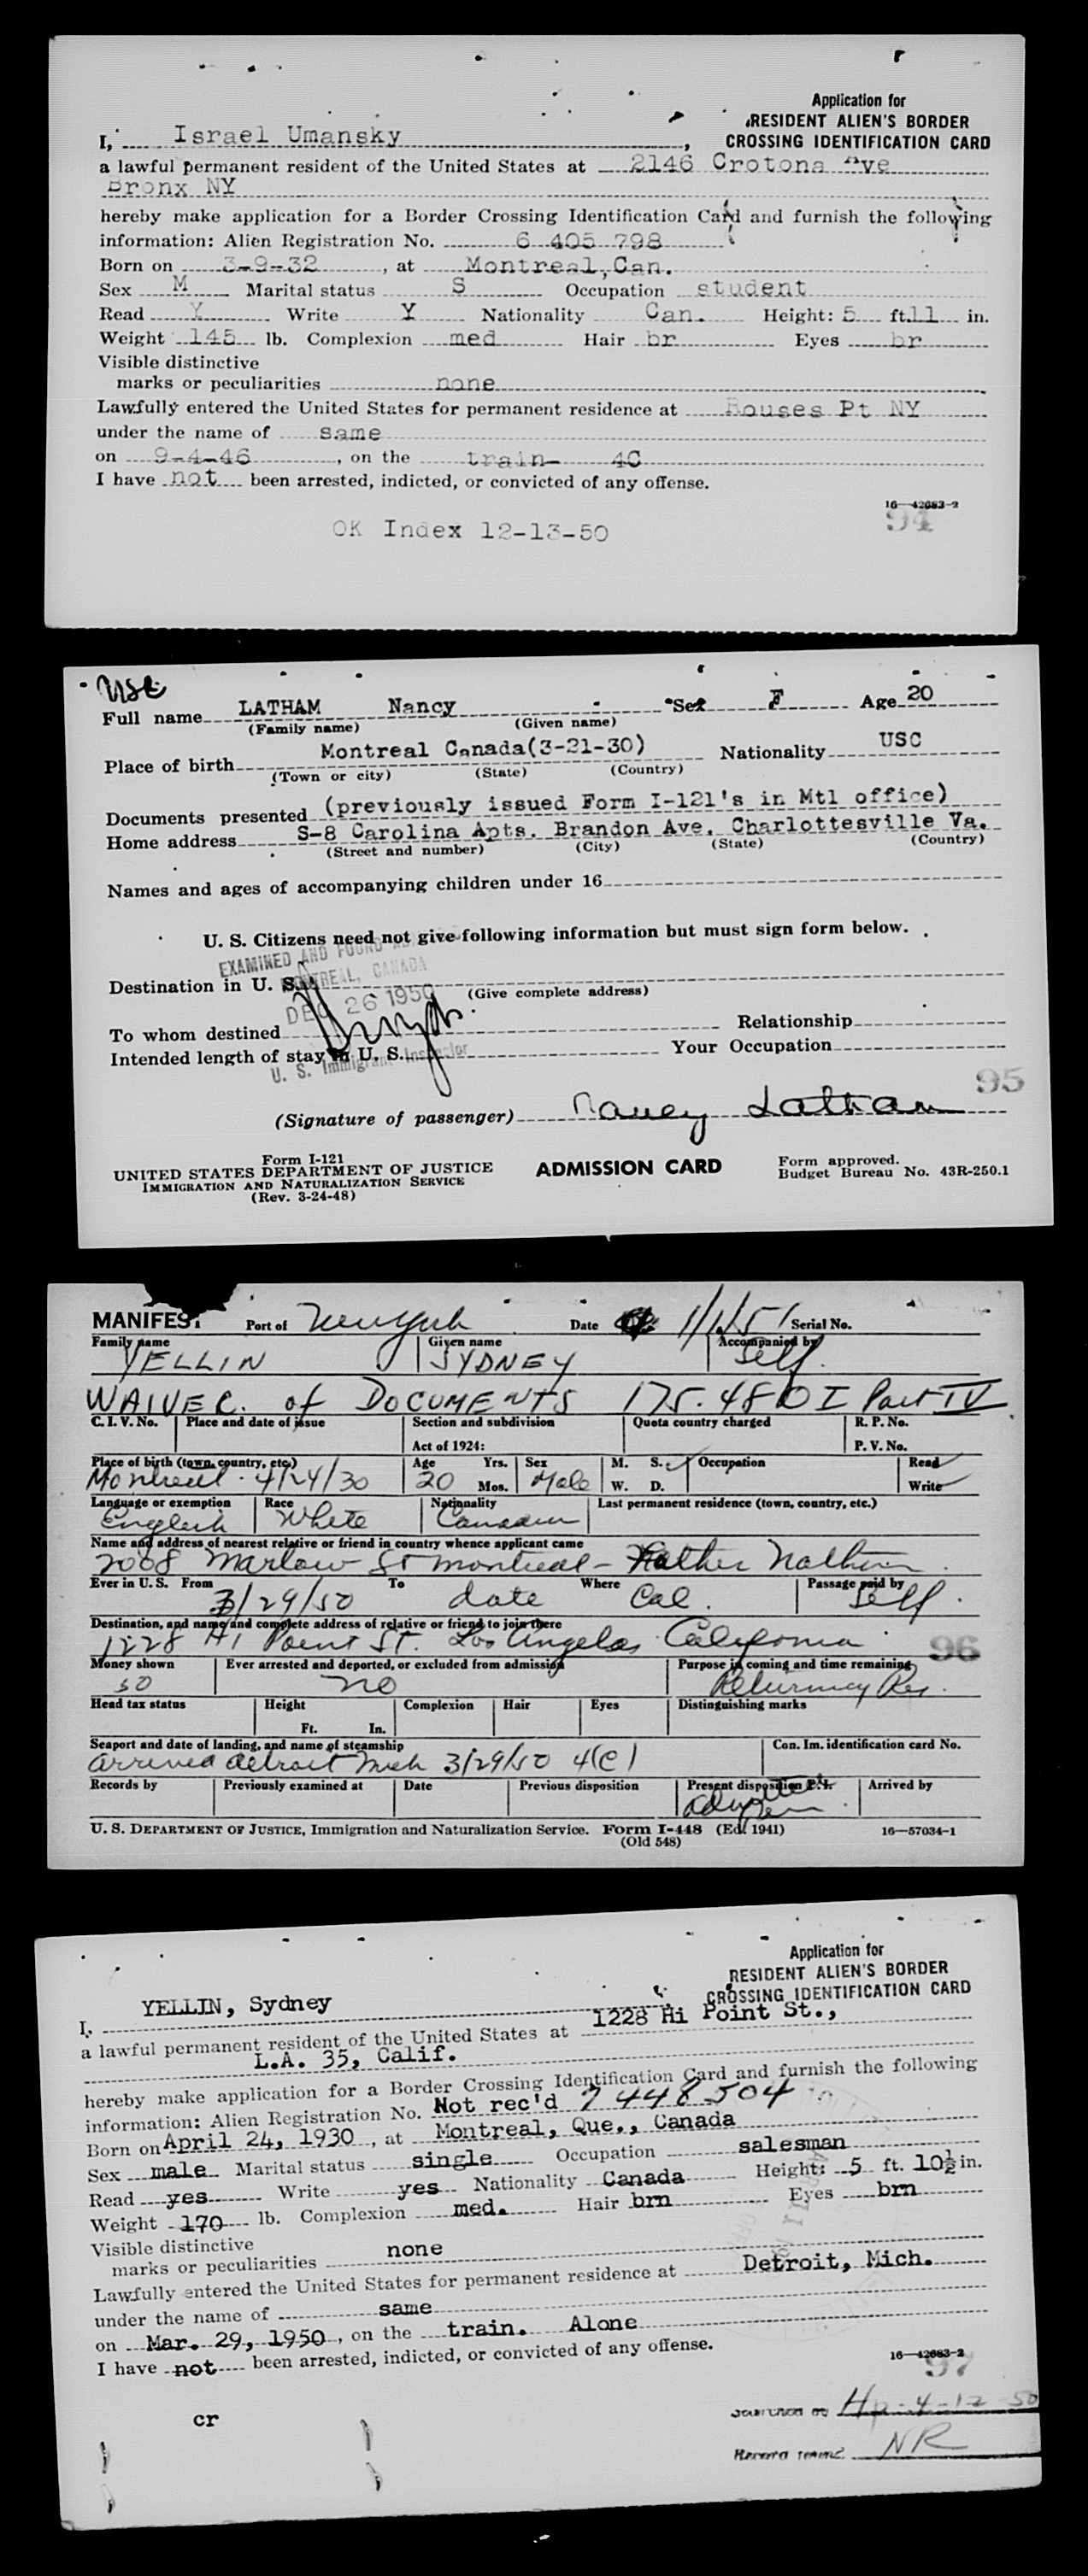 Application for
RESIDENT ALIEN'S BORDER
CROSSING IDENTIFICATION CARD
I, Israel Umansky,
a lawful permanent resident of the United States at 2146 Crotona Ave
Bronx NY
hereby make application for a Border Crossing Identification Card and furnish the following
information: Alien Registration No. 6 405 798
Born on 3-9-32, at Montreal, Can.
Sex M Marital status S Occupation student
Read Y Write Y Nationality Can. Height: 5 ft. 11 in.
Weight 145 lb. Complexion med Hair br Eyes br
Visible distinctive
marks or peculiarities none
Lawfully entered the United States for permanent residence at Rouses Pt NY
under the name of same
on 9-4-46, on the train- 4C
I have not been arrested, indicted, or convicted of any offense.
16—42683-2
94
OK Index 12-13-50
USC
Full name LATHAM Nancy Sex F Age 20
(Family name) (Given name)
Place of birth Montreal Canada(3-21-30) Nationality USC
(Town or city) (State) (Country)
Documents presented (previously issued Form I-121's in Mtl office)
Home address S-8 Carolina Apts. Brandon Ave. Charlottesville Va.
(Street and number) (City) (State) (Country)
Names and ages of accompanying children under 16
U. S. Citizens need not give following information but must sign form below.
EXAMINED AND FOUND
MONTREAL, CANADA
Destination in U. S.
(Give complete address)
DEC 26 1950
To whom destined Relationship
Intended length of stay in U. S. Your Occupation
U. S. Immigrant Inspector
95
(Signature of passenger) Nancy Latham
Form I-121
UNITED STATES DEPARTMENT OF JUSTICE
IMMIGRATION AND NATURALIZATION SERVICE
(Rev. 3-24-48)
ADMISSION CARD
Form approved.
Budget Bureau No. 43R-250.1
MANIFEST Port of New York Date 1/1/51 Serial No.
Family name Given name Accompanied by
YELLIN SYDNEY Self.
WAIVER of DOCUMENTS 175.48 Part IV
C. I. V. No. Place and date of issue Section and subdivision Quota country charged R. P. No.
Act of 1924: P. V. No.
Place of birth (town, country, etc.) Age Yrs. Sex M. S. Occupation Read
Montreal 4/24/30 20 Mos. Male W. D. Write
Language or exemption Race Nationality Last permanent residence (town, country, etc.)
English White Canadian
Name and address of nearest relative or friend in country whence applicant came
2008 Marlow St Montreal - Father Nathan
Ever in U. S. From To Where Passage paid by
3/29/50 date Cal. Self.
Destination, and name and complete address of relative or friend to join there
1228 Hi Point St. Los Angeles California
96
Money shown Ever arrested and deported, or excluded from admission Purpose in coming and time remaining
50 no Returning Res.
Head tax status Height Complexion Hair Eyes Distinguishing marks
Ft. In.
Seaport and date of landing, and name of steamship Con. Im. identification card No.
Arrived Detroit Mich 3/29/50 4(c)
Records by Previously examined at Date Previous disposition Present disposition P.I. Arrived by
Admitted
U. S. DEPARTMENT OF JUSTICE, Immigration and Naturalization Service. Form I-448 (Ed. 1941) 16—57034-1
(Old 548)
Application for
RESIDENT ALIEN'S BORDER
CROSSING IDENTIFICATION CARD
I, YELLIN, Sydney
a lawful permanent resident of the United States at 1228 Hi Point St.,
L.A. 35, Calif.
hereby make application for a Border Crossing Identification Card and furnish the following
information: Alien Registration No. Not rec'd 7 448 504
Born on April 24, 1930, at Montreal, Que., Canada
Sex male Marital status single Occupation salesman
Read yes Write yes Nationality Canada Height: 5 ft. 10½ in.
Weight 170 lb. Complexion med. Hair brn Eyes brn
Visible distinctive
marks or peculiarities none
Lawfully entered the United States for permanent residence at Detroit, Mich.
under the name of same
on Mar. 29, 1950, on the train. Alone
I have not been arrested, indicted, or convicted of any offense.
16—42683-2
97
cr
4-12-50
NR